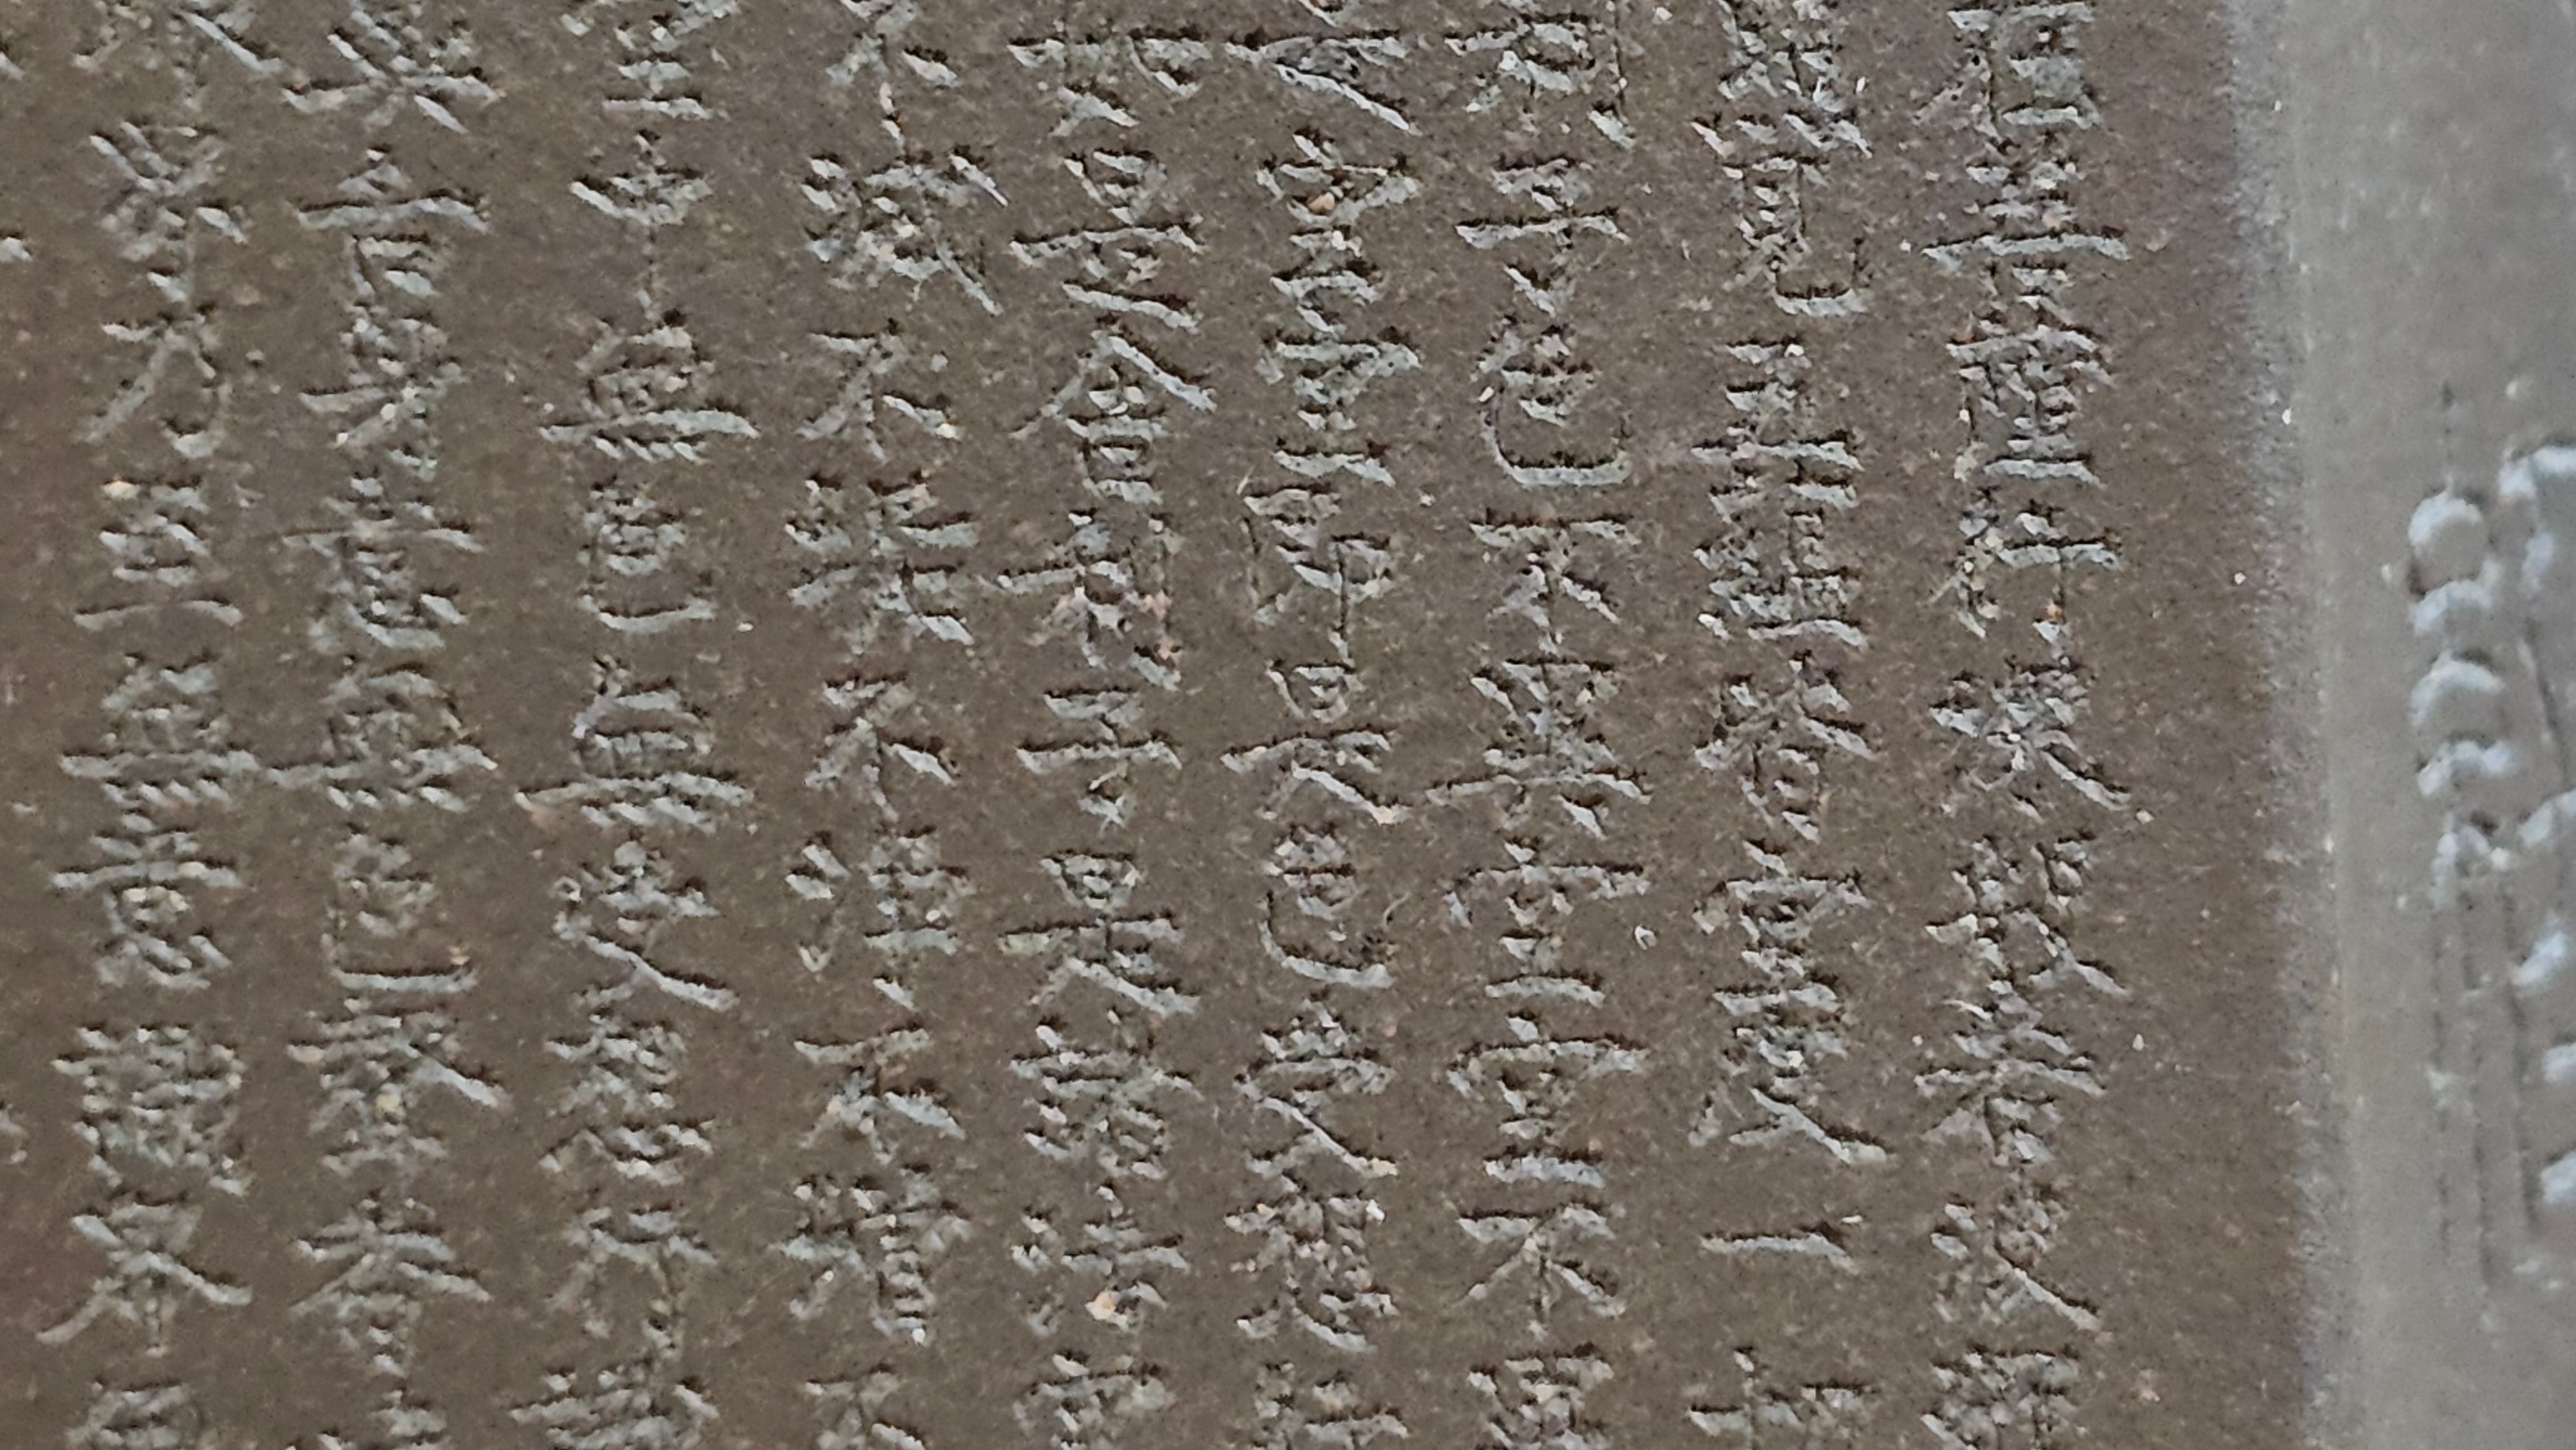 在菩薩行深般若波羅
照見五蘊皆空度一切
利子色不異空空不異
是空空即是色受想行
如是舍利子是諸法空
不滅不垢不淨不增不
空中無色無受想行識
鼻舌身意無色聲香味
眼界乃至無意識界無